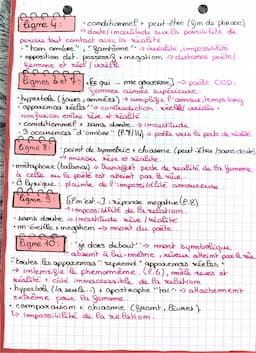 Ligne 4: • conditionnel + peut-être (fin de phrase)
→ doute/incertitude sur la possibilité de
percus tout contact avec la réalité
• "bon ombre", "fantôme" → irréalité, impossibilité
• opposition det. possessif + négation → distance poète/
femme et réel/irréel
Lignes 6 et 7: • "Et qui ... me gouverne" → poète COD.
femme aimée supérieure.
• hyperbole (jours, années) → amplifie l'amour, temps long
• apparences réelles → contradiction réel/irréel →
confusion entre rêve et réalité
• conditionnel + sans doute → incertitude.
• 3 occurrences d'"ombre" (P.7/14) → poète vers la perte de réalité
Ligne 8: • point de symétrie + chiasme (peut-être/sans doute)
→ mêler rêve et réalité.
• métaphore (balance) → transfert perte de réalité de la femme,
à celle du poète est atteint par le rêve.
• ô lyrique: plainte de l'impossibilité amoureuse
Ligne 9: • [il m'est...] réponse négative (P.8)
→ impossibilité de la relation.
• sans doute → incertitude rêve/réalité
• m'éveille + négation → mort du poète.
Ligne 10: • "je dors debout" → mort symbolique,
absent à lui-même, rêveur atteint par le rêve
• "toutes les apparences" "reprenne" apparences réelles →
→ intensifie le phénomène. (P.6), mêle rêves et
réalité + côté inaccessible de la relation
• hyperbole (la seule...) + apostrophe "toi" → attachement
extrême pour la femme.
• comparaison + chiasme (front, lèvres)
→ impossibilité de la relation.